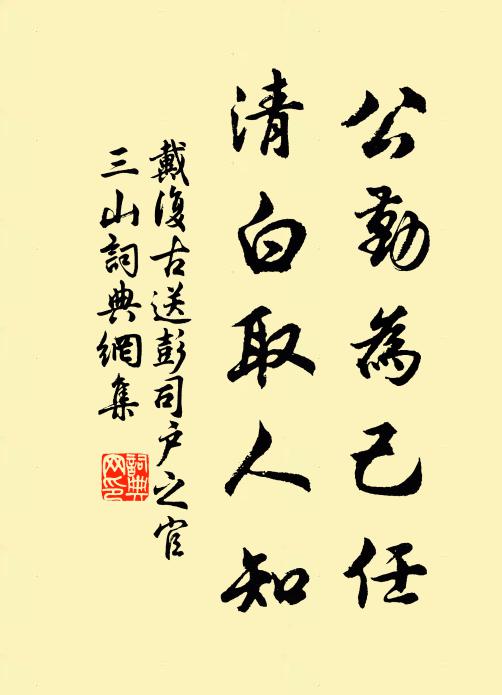 公勤為己任
清白取人知
戴復古送彭司戶之官
三山詞典網集
詞典網印